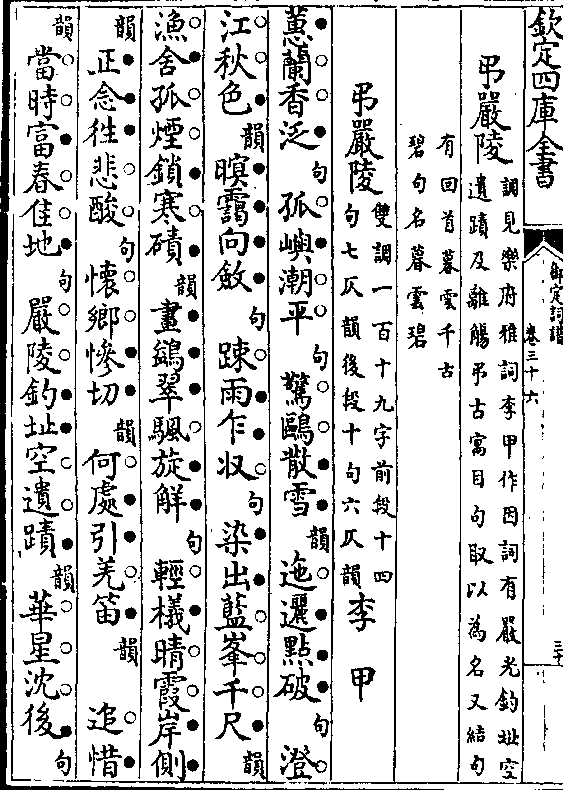 欽定四庫全書
御定詞譜
卷三十六
弔嚴陵 調見樂府雅詞李甲作因詞有嚴光釣址空
遺蹟及離觴弔古寓目句取以為名又結句
有回首暮雲千古
碧句名暮雲碧
弔嚴陵 雙調一百十九字前段十四
句七仄韻後段十句六仄韻 李甲
蕙蘭香泛句孤嶼潮平句驚鷗散雪韻迤邐點破句澄
江秋色韻暝靄向斂句踈雨乍收句染出藍峯千尺韻
漁舍孤煙鎖寒磧韻畫鷁翠颿旋解句輕檥晴霞岸側
韻正念徃悲酸句懷鄉慘切韻何處引羌笛韻追惜
韻當時富春佳地句嚴陵釣址空遺蹟韻華星沈後句